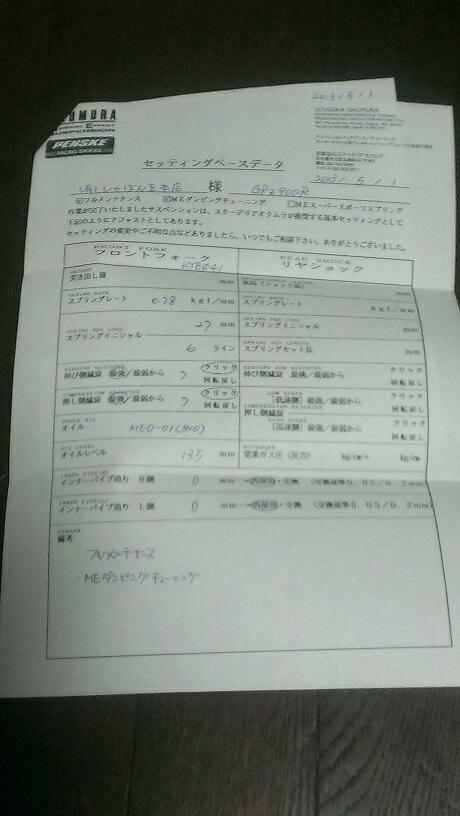 2013/5/1
OKUMURA
SUSPENSION
PENSKE
RACING SHOCKS
SCUDERIA OKUMURA
セッティングベースデータ
2013/5/1
(有)しゃぼん玉本店 様 GPZ900R
☑フルメンテナンス ☑MEダンピングチューニング □MEスーパースポーツスプリング
作業が完了いたしましたサスペンションは、スクーデリアオクムラが推奨する基本セッティングとして
下記のようにアジャストとしてあります。
セッティングの変更やご不明な点などありましたら、いつでもご相談下さい。ありがとうございました。
FRONT FORK
フロントフォーク
REAR SHOCK
リヤショック
KYBφ41
突き出し量 mm
mm
SPRING RATE
スプリングレート 0.78 kgf/mm
SPRING RATE
スプリングレート kgf/mm
SPRING PRE LOAD
スプリングイニシャル 27 mm
SPRING PRE LOAD
スプリングイニシャル mm
6 ライン
SPRING SET LENGTH
スプリングセット長 mm
REBOUND ADJUSTER
伸び側減衰 最強/最弱から クリック
回転戻し
REBOUND ADJUSTER
伸び側減衰 最強/最弱から クリック
回転戻し
COMPRESSION ADJUSTER
押し側減衰 最強/最弱から クリック
回転戻し
LOW SPEED
[低速側] 最強/最弱から クリック
COMPRESSION ADJUSTER
押し側減衰 回転戻し
HIGH SPEED
[高速側] 最強/最弱から クリック
回転戻し
オイル MEO-01(1NO)
OIL LEVEL
オイルレベル 135 mm
NITROGEN
窒素ガス圧(反力) kg/cm² kg/cm
INNER PIPE(R)
インナーパイプ曲り R側 0 mm →再使用・交換 (交換基準0.05/0.2mm)
INNER PIPE(L)
インナーパイプ曲り L側 0 mm →再使用・交換 (交換基準0.05/0.2mm)
REMARK
備考
フルメンテナンス
MEダンピングチューニング